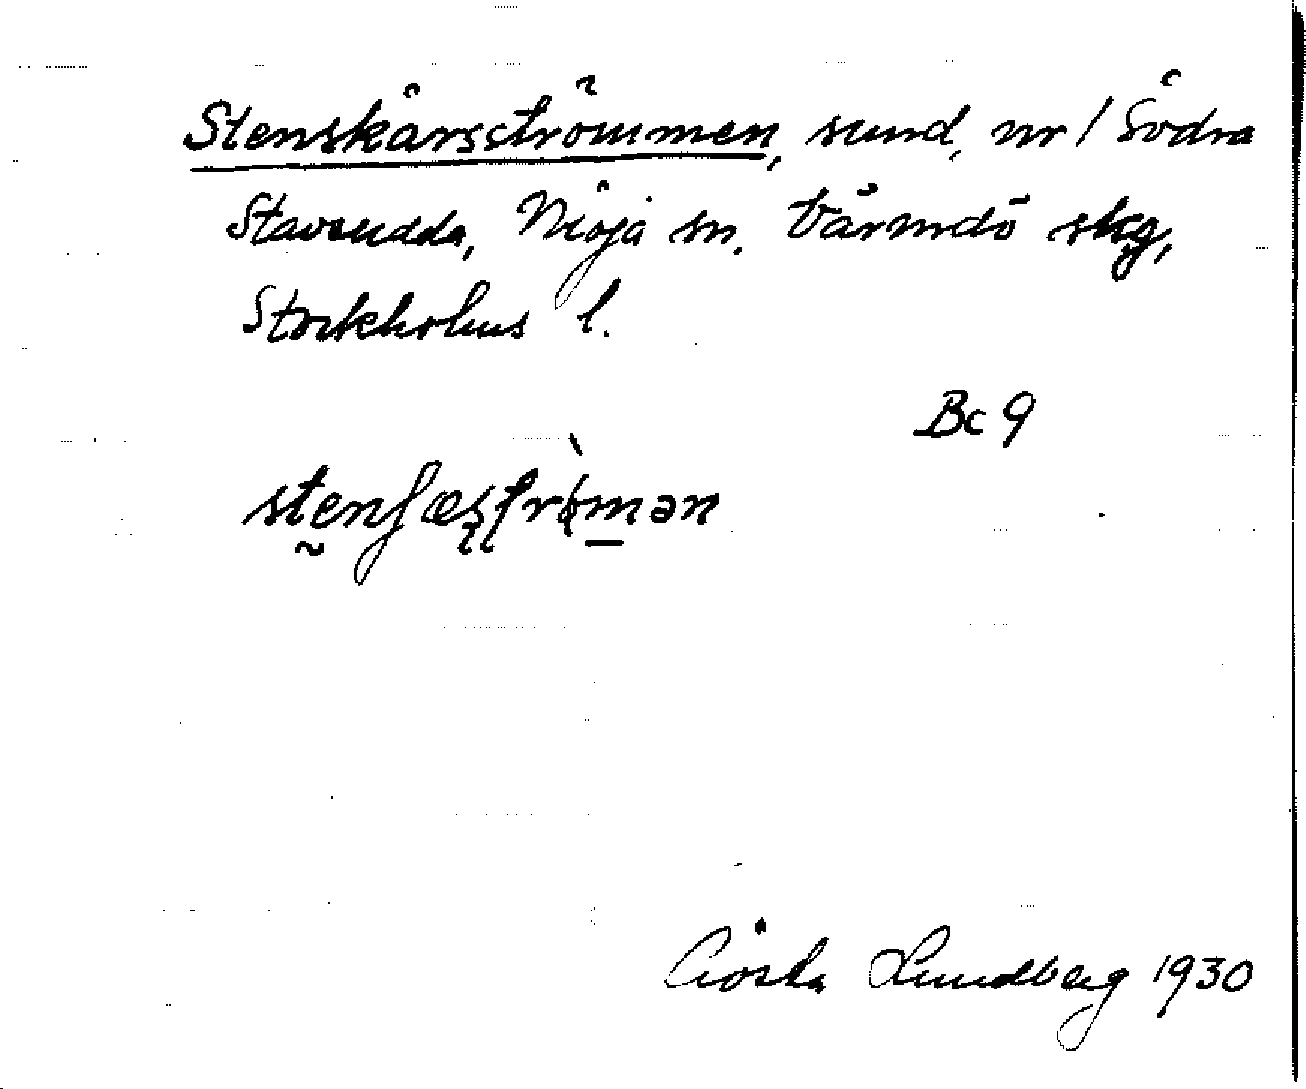 Stenskärsströmmen, sund, nv / Södra
Stavsudda, Möja sn. Värmdö skg,
Stockholms l.
Bc 9
Gösta Lundberg 1930